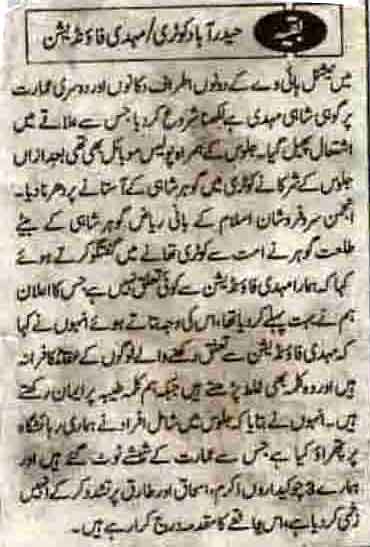 بقیہ
حیدرآباد کوٹری/مہدی فاؤنڈیشن
میں نیشنل ہائی وے کے دونوں اطراف دکانوں اور دوسری عمارت
پر گوہر شاہی مہدی ہے لکھنا شروع کردیا جس سے علاقے میں
اشتعال پھیل گیا۔ جلوس کے ہمراہ پولیس موبائل بھی تھی بعد ازاں
جلوس کے شرکا نے کوٹری میں گوہر شاہی کے آستانے پر دھرنا دیا۔
انجمن سرفروشان اسلام کے بانی ریاض گوہر شاہی کے بیٹے
طلعت گوہر نے امت سے کوٹری تھانے میں گفتگو کرتے ہوئے
کہا کہ ہمارا مہدی فاؤنڈیشن سے کوئی تعلق نہیں ہے جس کا اعلان
ہم نے بہت پہلے کردیا تھا، اس کی وجہ بتاتے ہوئے انہوں نے کہا
کہ مہدی فاؤنڈیشن سے تعلق رکھنے والے لوگوں کے عقائد کافرانہ
ہیں اور وہ کلمہ بھی غلط پڑھتے ہیں جبکہ ہم کلمہ طیبہ پر ایمان رکھتے
ہیں۔ انہوں نے بتایا کہ جلوس میں شامل افراد نے ہماری رہائشگاہ
پر پتھراؤ کیا ہے جس سے عمارت کے شیشے ٹوٹ گئے ہیں اور
ہمارے 3 چوکیداروں اکرم، اسحاق اور طارق پر تشدد کر کے انہیں
زخمی کردیا ہے، اس واقعے کا مقدمہ درج کرا رہے ہیں۔